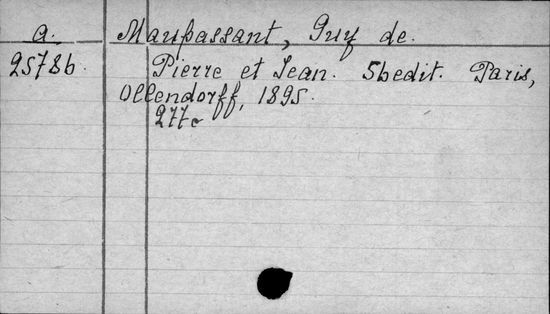 a. Maupassant, Guy de.
25786. Pierre et Jean. 56edit. Paris,
Ollendorff, 1895.
277c